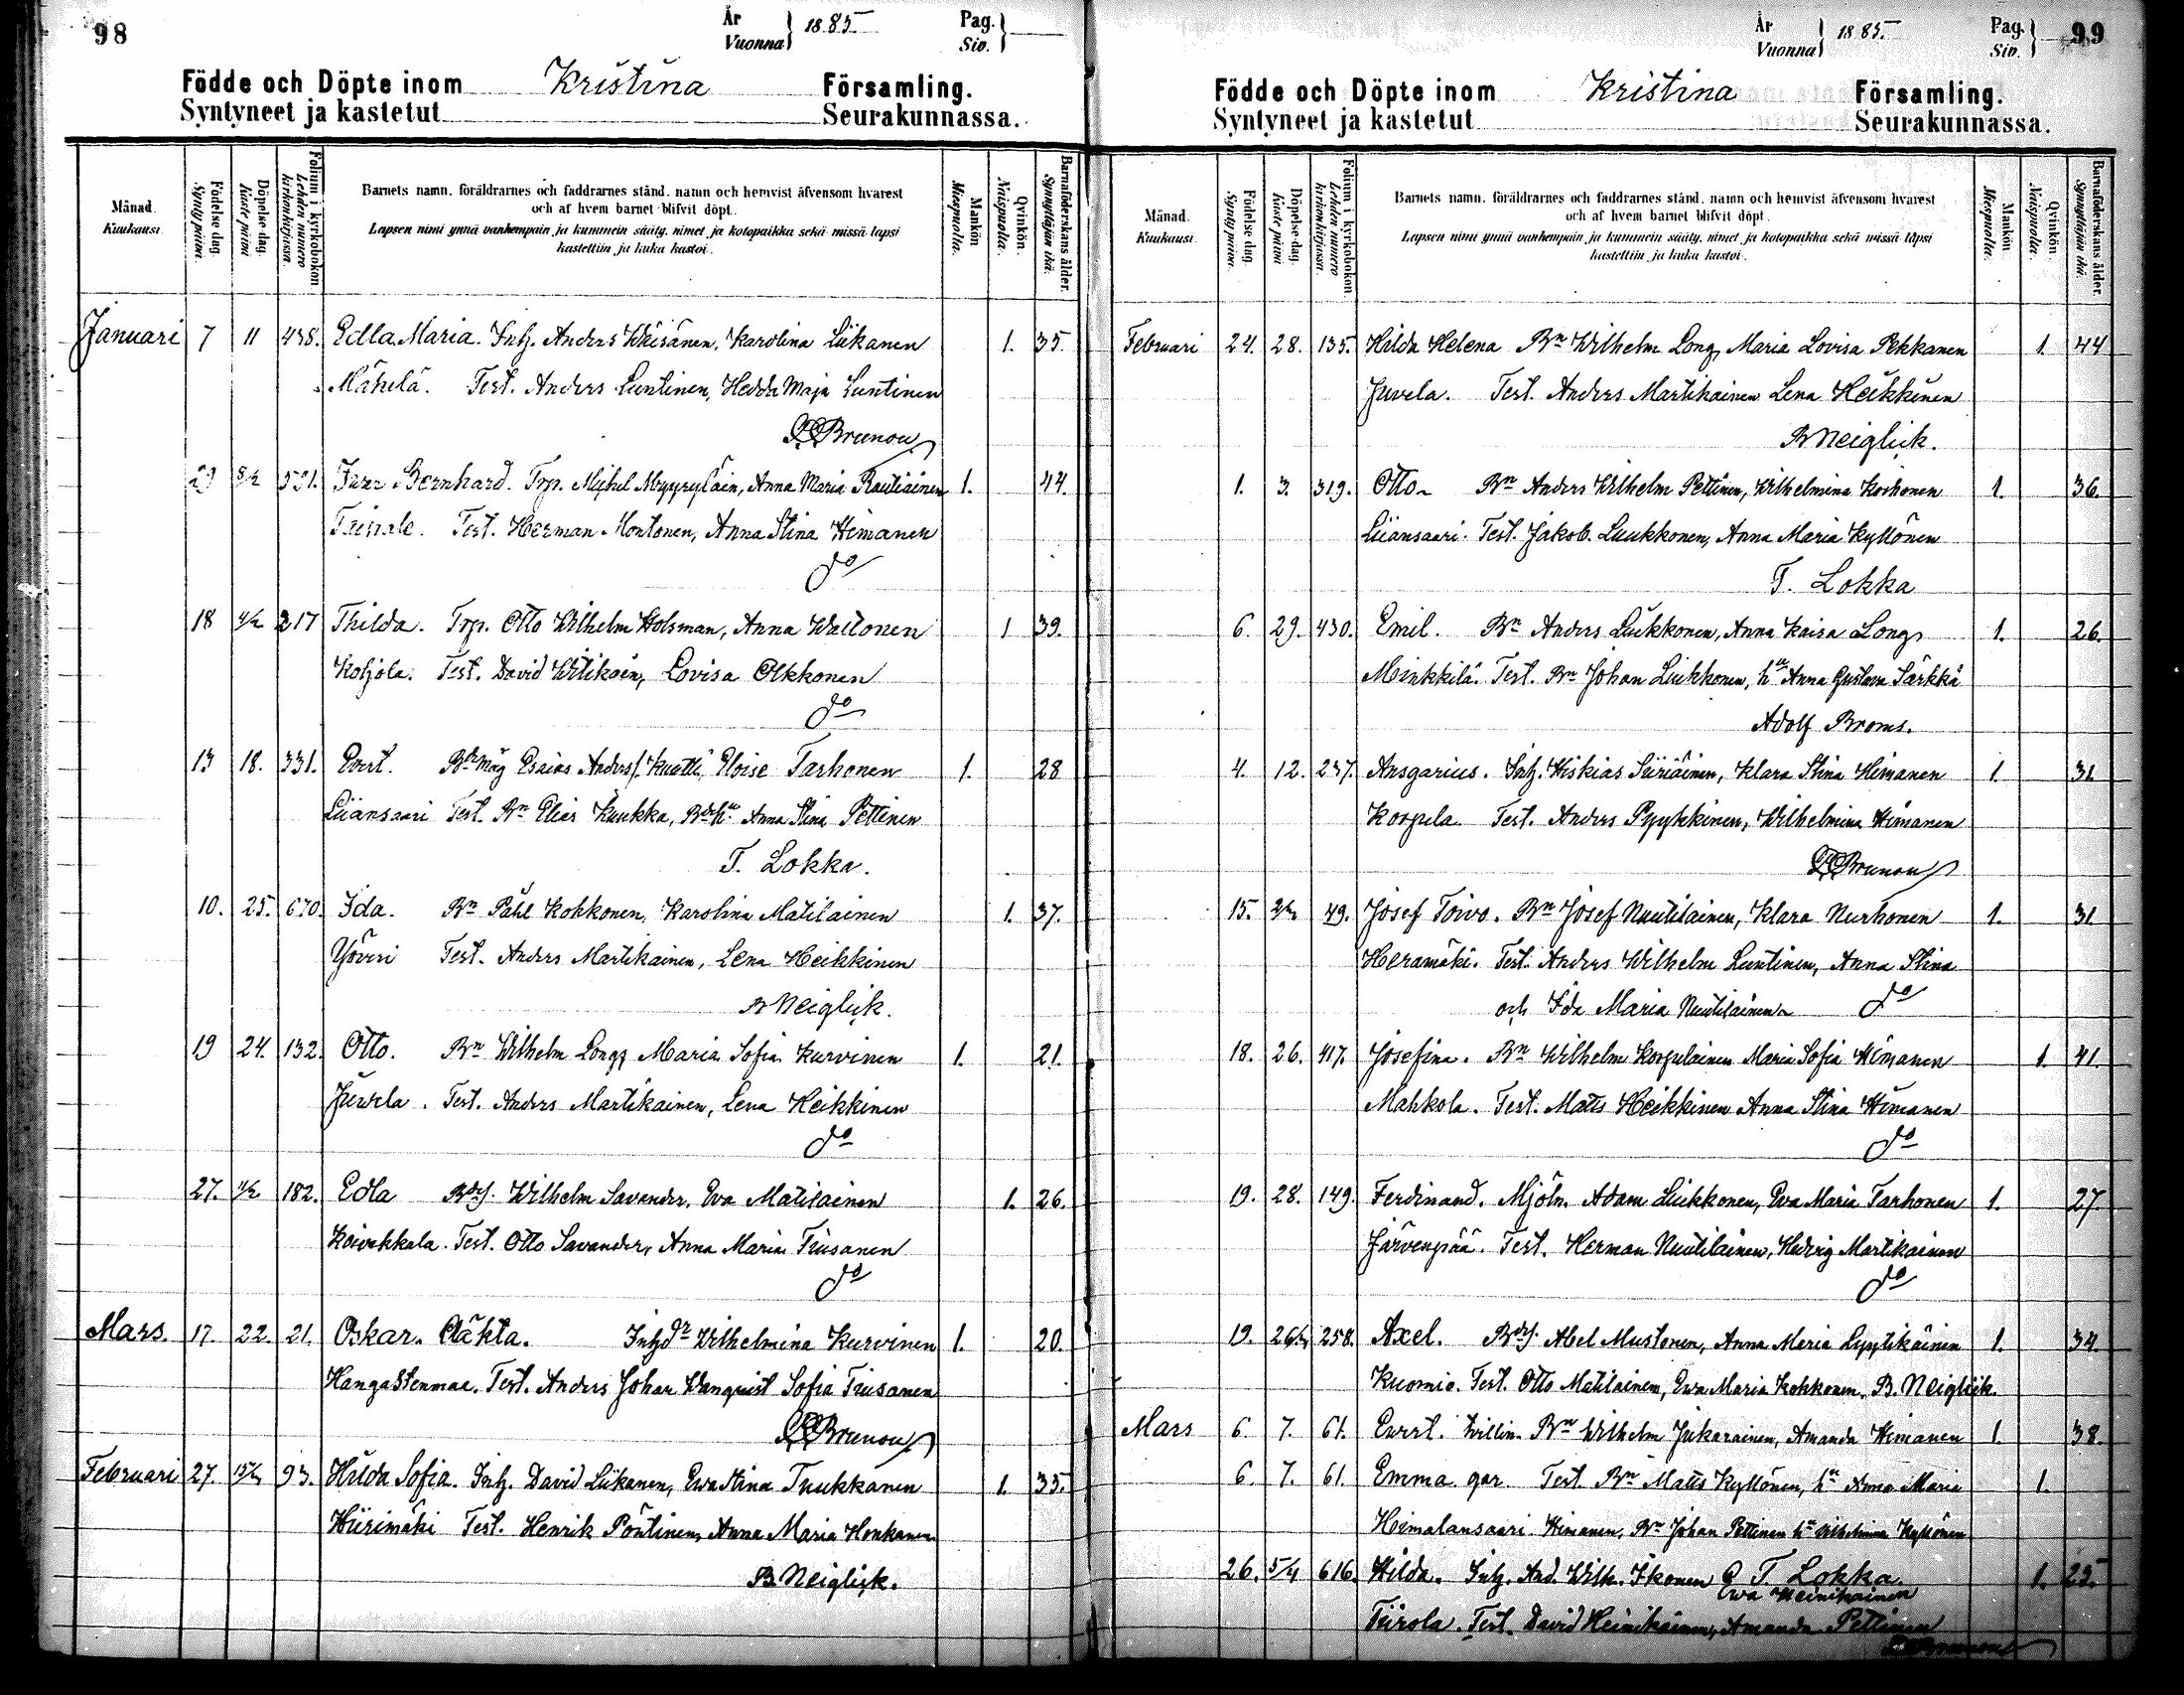 98
År
Vuonna } 1885.
Pag.
Siv. }
Födde och Döpte inom Kristina Församling.
Syntyneet ja kastetut Seurakunnassa.
Månad.
Kuukausi.
Födelse dag.
Synty päivä.
Döpelse dag.
Kaste päivä
Folium i kyrkobokon
Lehden numero
kirkonkirjassa.
Barnets namn, föräldrarnes och faddrarnes stånd, namn och hemvist äfvensom hvarest
och af hvem barnet blifvit döpt.
Lapsen nimi ynnä vanhempain ja kummein sääty, nimet ja kotopaikka sekä missä lapsi
kastettiin ja kuka kastoi.
Mankön
Miespuolta.
Qvinkön.
Naispuolta.
Barnaföderskans ålder.
Synnyttäjän ikä.
Januari 7 11 438. Edla Maria. Inh. Anders Wäisänen, Karolina Liikanen 1. 35.
Mähelä. Test. Anders Luntinen, Hedda Maja Luntinen
Brunou
29 8/2 Bernhard. Trp. Michel Myyryläin, Anna Maria Rautiainen 1. 44.
Test. Herman Montonen, Anna Stina Himanen
do
18 4/2 217 Thilda. Trp. Otto Wilhelm Holsman, Anna Waitonen 1 39.
Kohjola. Test. David Witikain, Lovisa Olkkonen
do
13 18. 331. Evert. Bdemåg Esaias Andersf. Kuutti, Eloise Tarhonen 1. 28
Liiansaari Test. Bn Elias Kuukka, Bdehu Anna Stina Pettinen
T. Lokka.
10. 25. 670 Ida. Bn Påhl Kokkonen, Karolina Matilainen 1. 37.
Yöveri Test. Anders Martikainen, Lena Heikkinen
B Neiglick.
19 24. 132. Otto. Bn Wilhelm Long, Maria Sofia Kurvinen 1. 21.
Juvela. Test. Anders Martikainen, Lena Heikkinen
do
27. 11/2 182. Edla Bdes. Wilhelm Savander, Eva Matilainen 1. 26.
Koivakkala. Test. Otto Savander, Anna Maria Tiusanen
do
Mars. 17. 22. 21. Oskar. Oäkta. Inhdr Wilhelmina Kurvinen 1. 20.
Hangastenmaa. Test. Anders Johan Wanquist Sofia Tiusanen
Brunou
Februari 27. 15/3 93. Hilda Sofia. Inh. David Liikanen, Ewa Stina Tuukkanen 1. 35.
Hiirimäki Test. Henrik Pöntinen, Anna Maria Honkanen
B Neiglick.
År
Vuonna } 1885.
Pag.
Siv. } 99
Födde och Döpte inom Kristina Församling.
Syntyneet ja kastetut Seurakunnassa.
Månad.
Kuukausi.
Födelse dag.
Synty päivä.
Döpelse-dag.
Kaste päivä
Folium i kyrkobokon
Lehden numero
kirkonkirjassa.
Barnets namn, föräldrarnes och faddrarnes stånd, namn och hemvist äfvensom hvarest
och af hvem barnet blifvit döpt.
Lapsen nimi ynnä vanhempain ja kummein sääty, nimet ja kotopaikka sekä missä lapsi
kastettiin ja kuka kastoi.
Mankön
Miespuolta.
Qvinkön.
Naispuolta.
Barnaföderskans ålder.
Synnyttäjän ikä.
Februari 24. 28. 135. Hilda Helena Bn Wilhelm Long, Maria Lovisa Pekkanen 1. 44
Juvela. Test. Anders Martikainen Lena Heikkinen
B Neiglick.
1. 3. 319. Otto. Bn Anders Wilhelm Pettinen, Wilhelmina Korhonen 1. 36.
Liiansaari. Test. Jakob Luukkonen, Anna Maria Kyllönen
T. Lokka
6. 29. 430. Emil. Bn Anders Liukkonen, Anna Kaisa Long 1. 26.
Minkkilä. Test. Bn Johan Liukkonen, hu Anna Gustava Särkkä
Adolf Broms.
4. 12. 237. Ansgarius. Inh. Hiskias Siiriäinen, Klara Stina Himanen 1. 31
Korpela. Test. Anders Pyykkinen, Wilhelmina Himanen
Brunou
15. 49. Josef Toivo. Bn Josef Nuutilainen, Klara Nurhonen 1. 31
Heramäki. Test. Anders Wilhelm Luntinen, Anna Stina
och Ida Maria Nuutilainen do
18. 26. 417. Josefina. Bn Wilhelm Korpelainen Maria Sofia Himanen 1. 41.
Mahkola. Test. Matts Heikkinen Anna Stina Himanen
do
19. 28. 149. Ferdinand. Mjöln. Adam Liukkonen, Eva Maria Tarhonen 1. 27.
Järvenpää. Test. Herman Nuutilainen, Hedvig Martikainen
do
19. 26/3 258. Axel. Bdes. Abel Mustonen, Anna Maria Lyytikäinen 1. 34.
Kuomio. Test. Otto Matilainen, Ewa Maria Kokkonen. B. Neiglick.
Mars 6. 7. 61. Evert. tvillin. Bn Wilhelm Jukarainen, Amanda Himanen 1. 38.
6. 7. 61. Emma gar Test. Bn Matts Kyllönen, hu Anna Maria 1.
Himalansaari Himanen, Bn Johan Pettinen hu Wilhelmina Kyllönen
T. Lokka
26. 5/4 616. Hilda. Inh. And. Wilh. Ikonen Ewa Heinikainen 1. 25.
Teirola. Test. David Heinikainen, Amanda Pettinen
Brunou